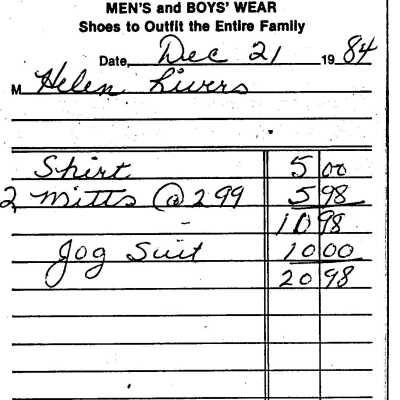 MEN'S and BOYS' WEAR
Shoes to Outfit the Entire Family
Date, Dec 21 1984
M Helen Livers
Shirt 5 00
2 Mitts @ 2 99 5 98
- 10 98
Jog Suit 10 00
20 98